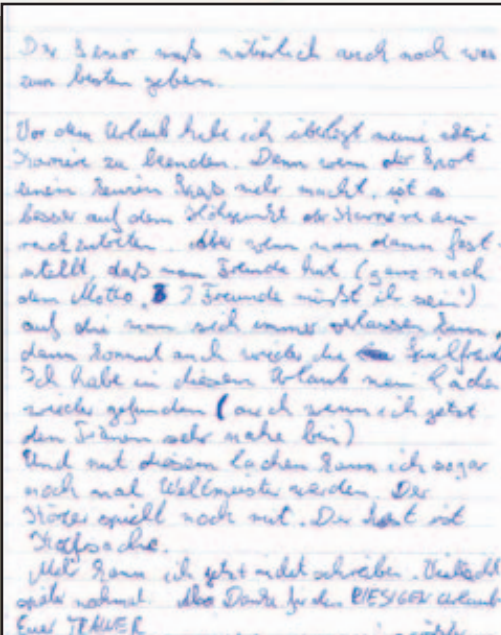 Der Senior muß natürlich auch noch was
zum besten geben.
Vor dem Urlaub habe ich überlegt meine aktive
Karriere zu beenden. Denn wenn der Sport
einem keinen Spaß mehr macht, ist es
besser auf dem Höhepunkt der Karriere
Aber wenn man dann fest-
stellt, daß man Freunde hat (ganz nach
dem Motto, 7 Freunde müßt ihr sein!)
auf die man sich immer verlassen kann,
dann kommt auch wieder die Spielfreude
Ich habe in diesem Urlaub mein Lachen
wieder gefunden (auch wenn ich jetzt
den Tränen sehr nahe bin)
Und mit diesem Lachen kann ich sogar
noch mal Weltmeister werden. Der
Körper spielt noch mit. Der Rest ist
Kopfsache.
Mehr kann ich jetzt nicht schreiben. Vielleicht
später nochmal. Also Danke für den RIESIGEN Urlaub
Euer